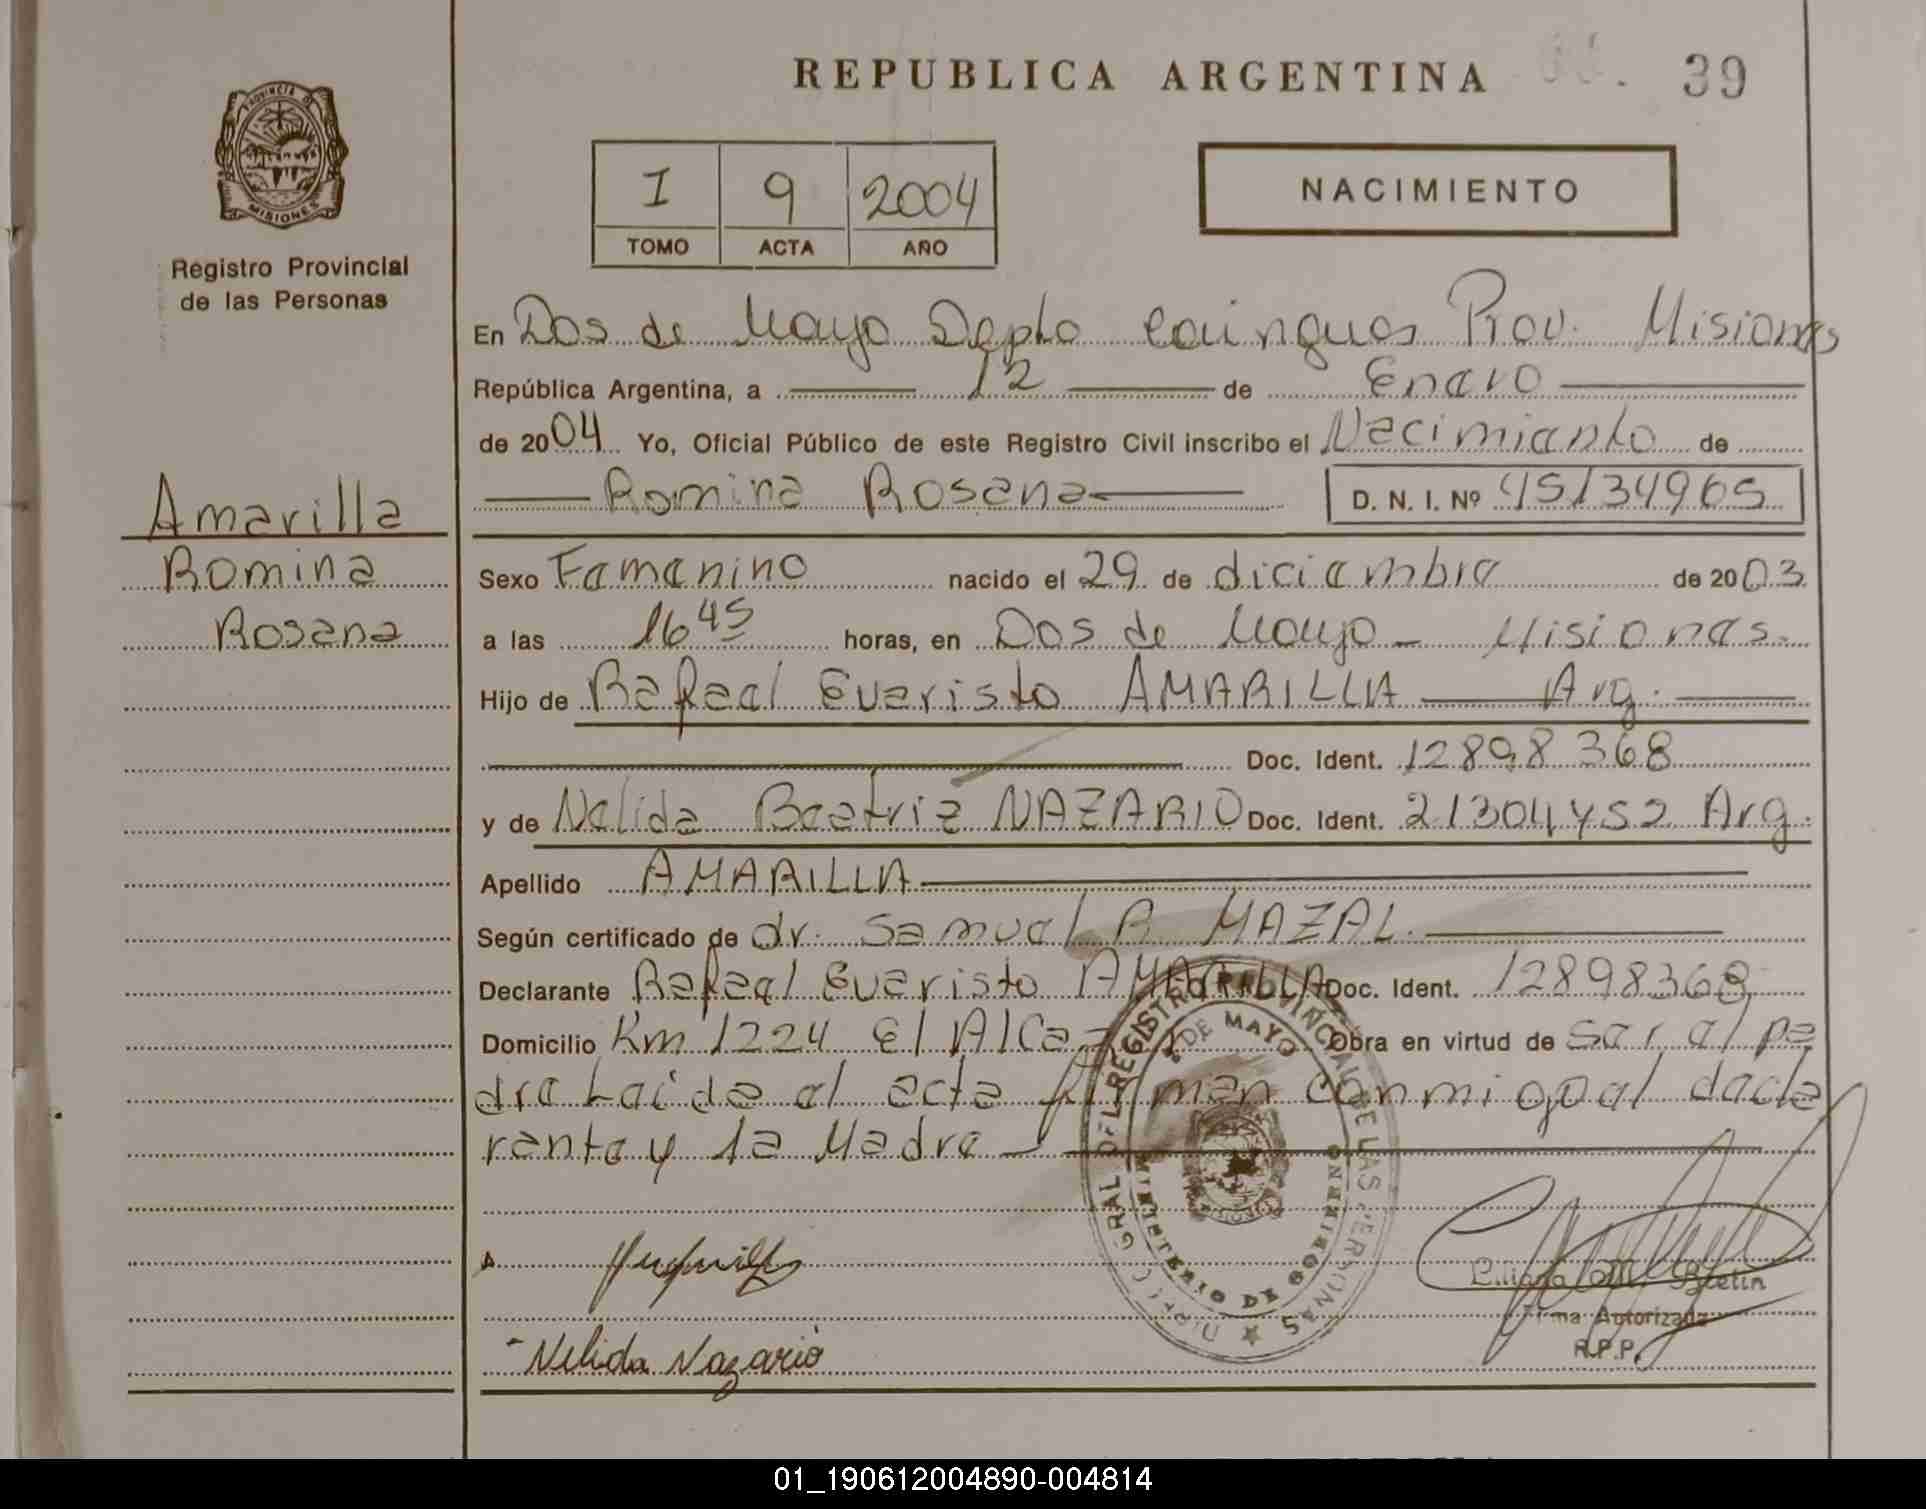 REPUBLICA ARGENTINA
39
PROVINCIA DE
MISIONES
Registro Provincial
de las Personas
I 9 2004
TOMO ACTA AÑO
NACIMIENTO
En Dos de Mayo Depto Cainguas Prov. Misiones
República Argentina, a 12 de Enero
de 2004 Yo, Oficial Público de este Registro Civil inscribo el Nacimiento de
Romina Rosana D. N. I. Nº 45134965
Amarilla
Romina
Rosana
Sexo Femenino nacido el 29 de diciembre de 2003
a las 16 45 horas, en Dos de Mayo - Misiones.
Hijo de Rafael Evaristo AMARILLA Arg.
Doc. Ident. 12898368
y de Nelida Beatriz NAZARIO Doc. Ident. 21304452 Arg.
Apellido AMARILLA
Según certificado de dr. Samuel A MAZAL.
Declarante Rafael Evaristo AMARILLA Doc. Ident. 12898368
Domicilio Km 1224 El Alcazar Obra en virtud de ser el pa
dre Leida el acta firman conmigo el decla
rante y la Madre
DE MAYO
GRAL DEL REGISTRO PROVINCIAL DE LAS PERSONAS
MINISTERIO DE GOBIERNO
Nelida Nazario
Firma Autorizada
R.P.P.
01_190612004890-004814